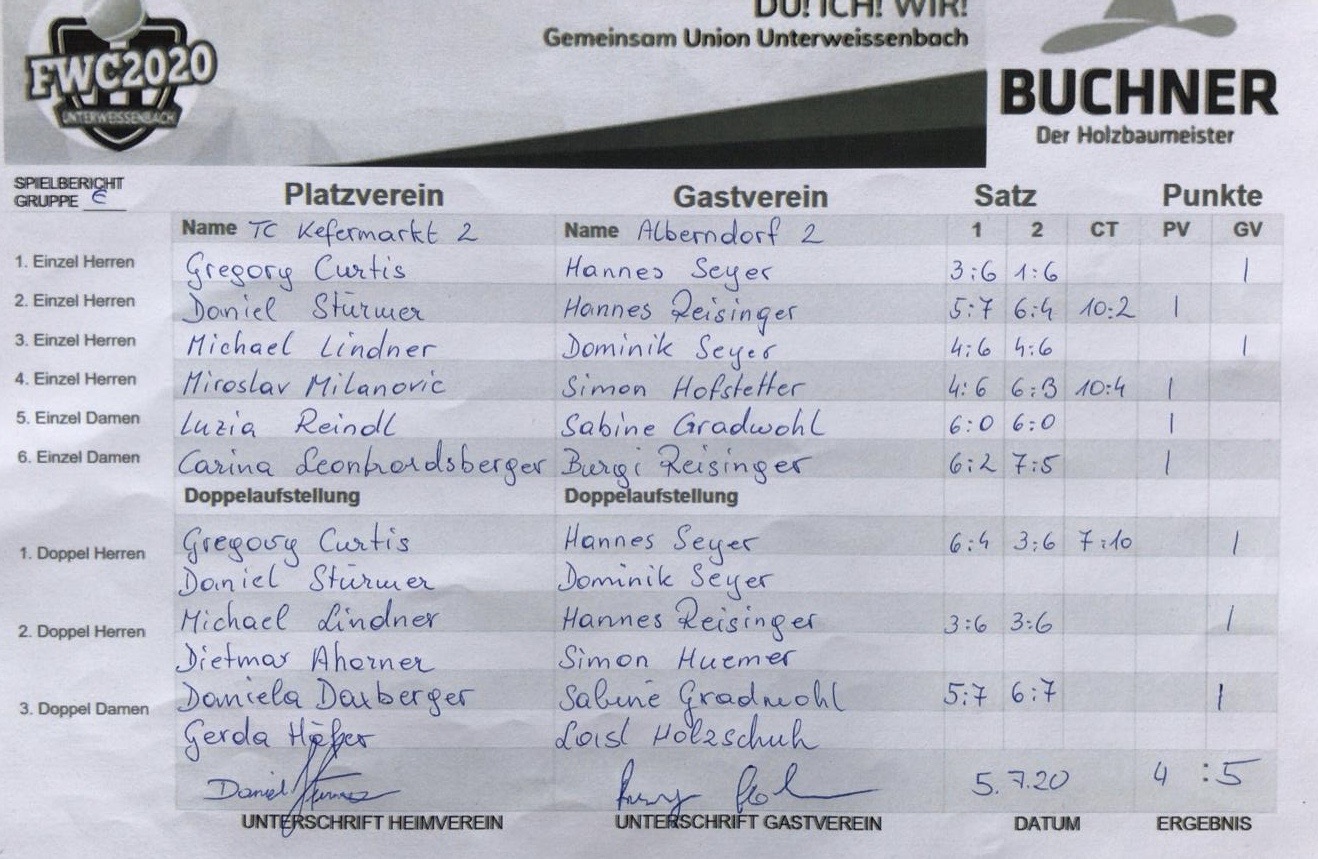 DU! ICH! WIR!
Gemeinsam Union Unterweissenbach
FWC2020
UNTERWEISSENBACH
BUCHNER
Der Holzbaumeister
SPIELBERICHT
GRUPPE E
Platzverein Gastverein Satz Punkte
Name TC Kefermarkt 2 Name Alberndorf 2 1 2 CT PV GV
1. Einzel Herren Gregory Curtis Hannes Seyer 3:6 1:6 1
2. Einzel Herren Daniel Stürmer Hannes Reisinger 5:7 6:4 10:2 1
3. Einzel Herren Michael Lindner Dominik Seyer 4:6 4:6 1
4. Einzel Herren Miroslav Milanovic Simon Hofstetter 4:6 6:3 10:4 1
5. Einzel Damen Luzia Reindl Sabine Gradwohl 6:0 6:0 1
6. Einzel Damen Carina Leonhardsberger Burgi Reisinger 6:2 7:5 1
Doppelaufstellung Doppelaufstellung
1. Doppel Herren Gregory Curtis Hannes Seyer 6:4 3:6 7:10 1
Daniel Stürmer Dominik Seyer
2. Doppel Herren Michael Lindner Hannes Reisinger 3:6 3:6 1
Dietmar Ahorner Simon Huemer
3. Doppel Damen Daniela Daxberger Sabine Gradwohl 5:7 6:7 1
Gerda Loisl Holzschuh
Daniel Stürmer 5.7.20 4 : 5
UNTERSCHRIFT HEIMVEREIN UNTERSCHRIFT GASTVEREIN DATUM ERGEBNIS